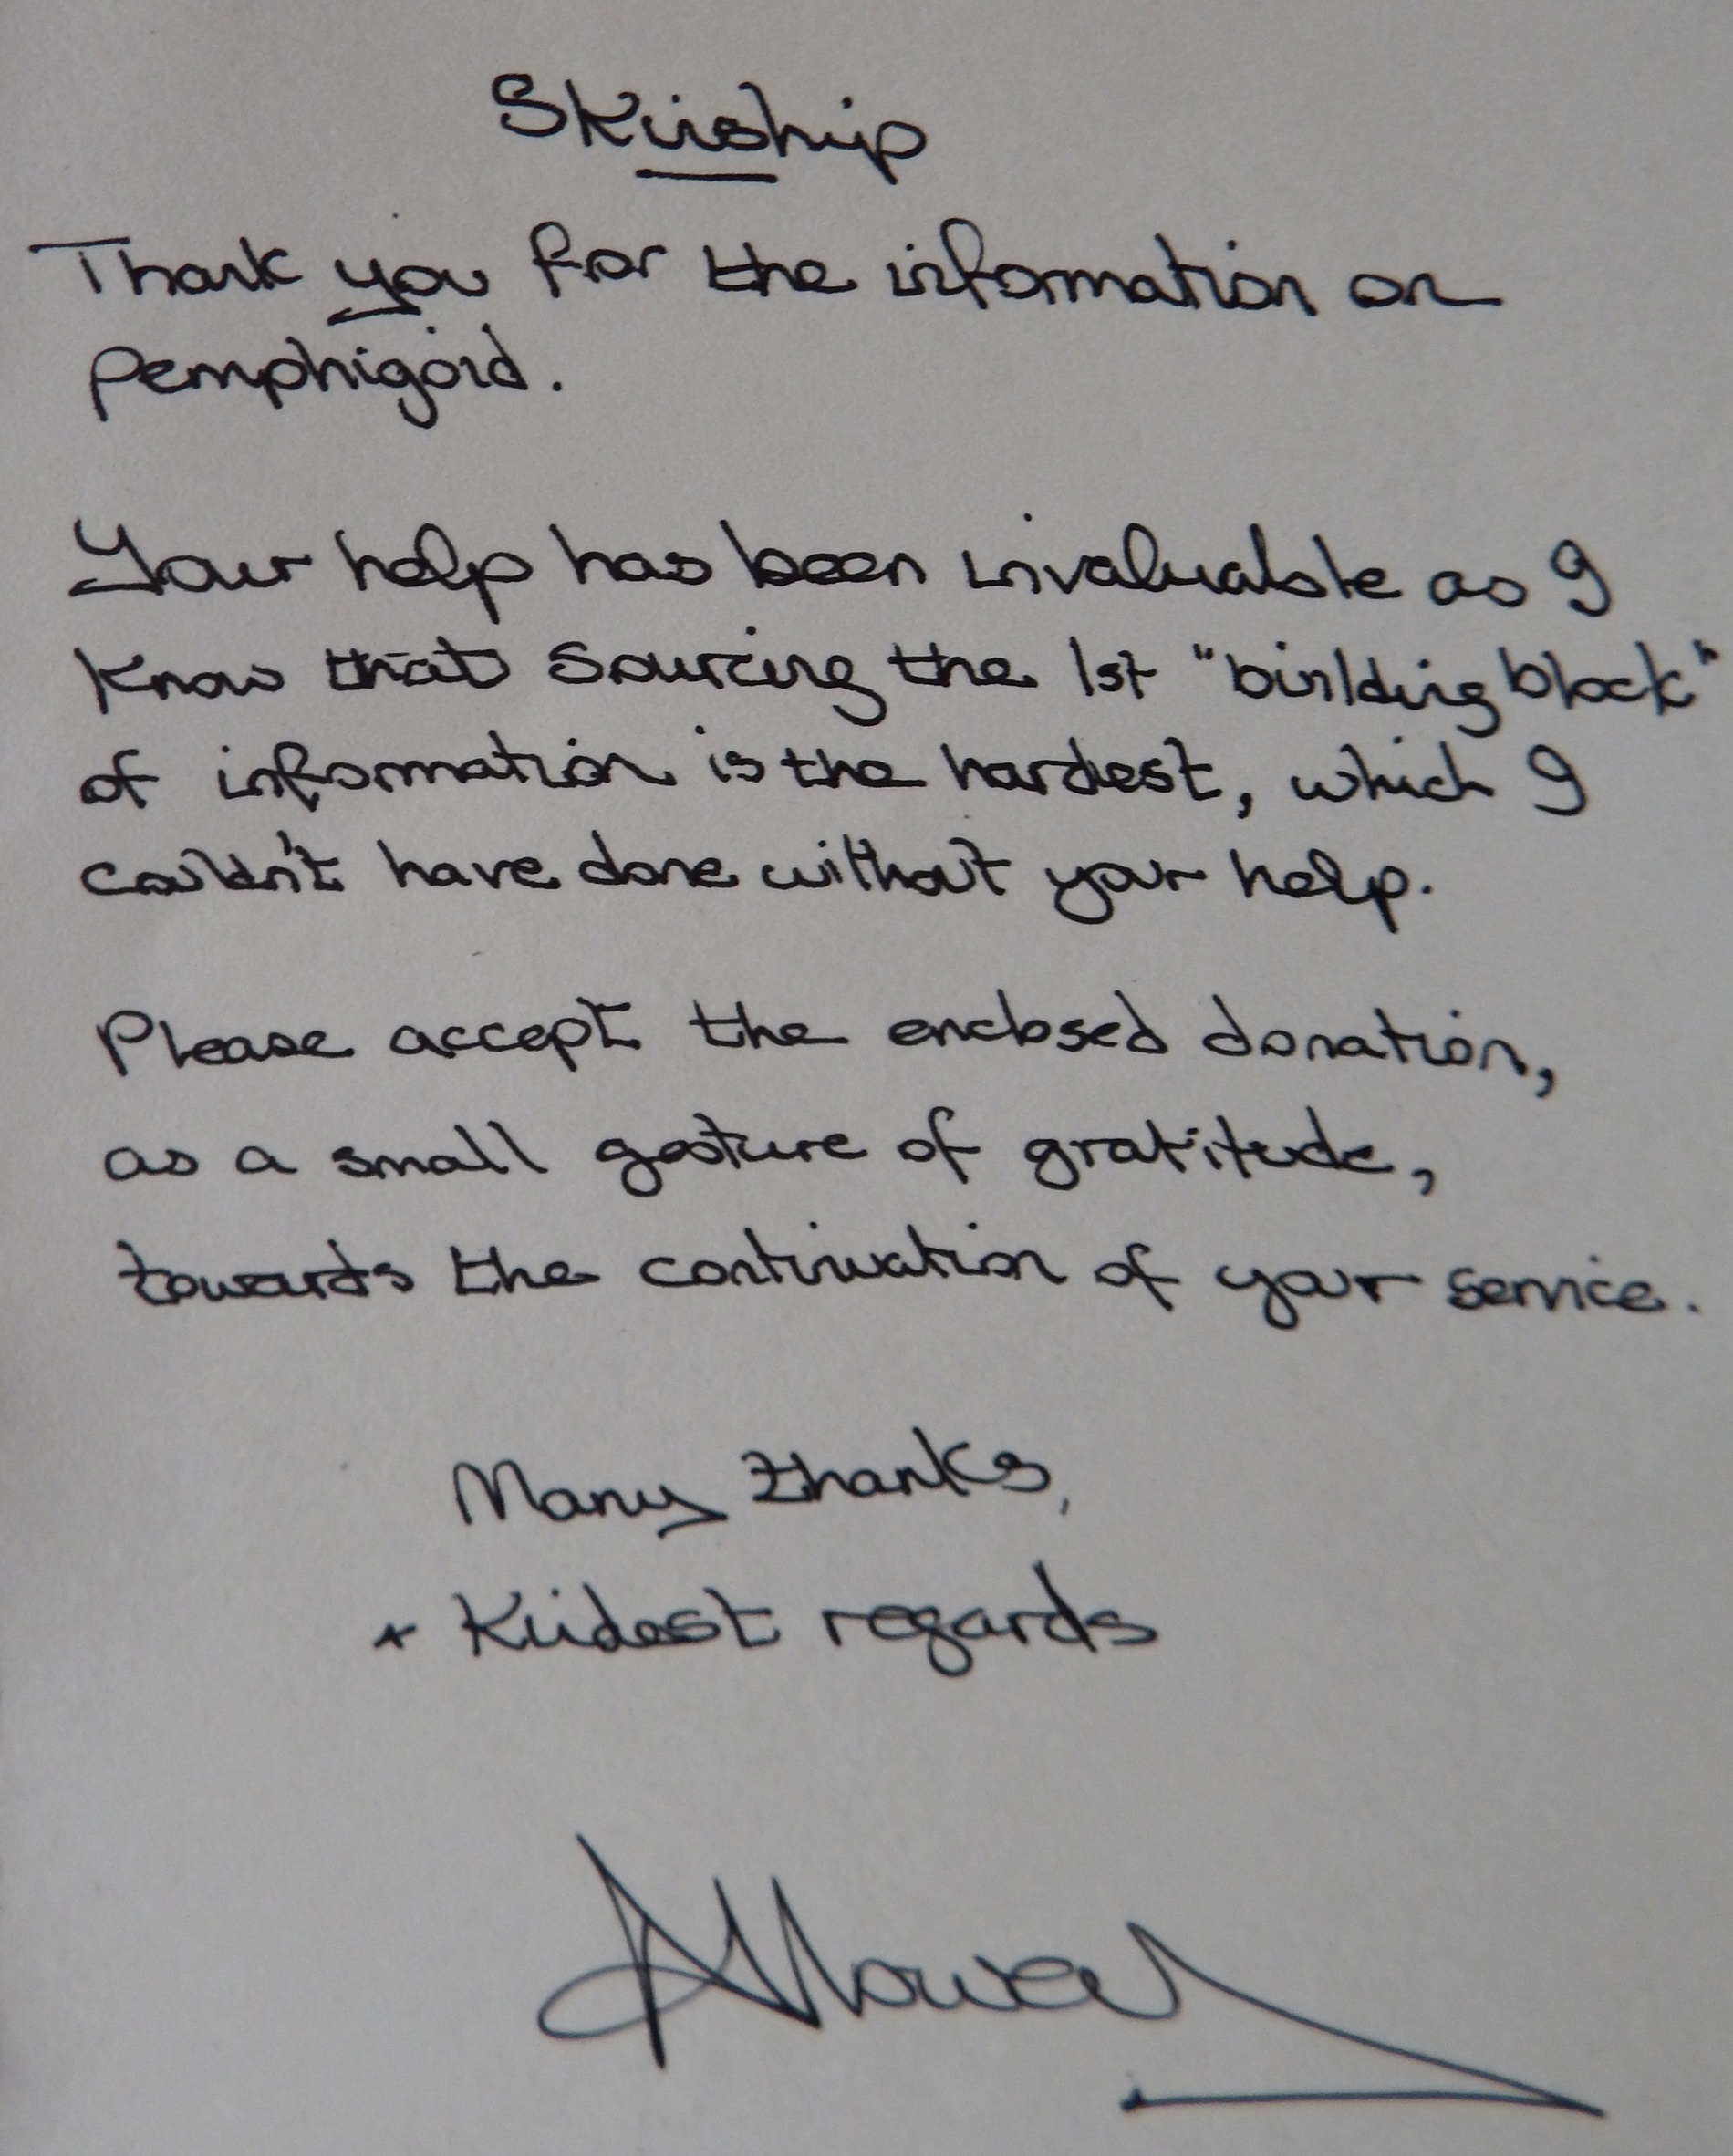 Skinship
Thank you for the information on
Pemphigoid.
Your help has been invaluable as I
know that sourcing the 1st "building block"
of information is the hardest, which I
couldn't have done without your help.
Please accept the enclosed donation,
as a small gesture of gratitude,
towards the continuation of your service.
Many thanks,
+ Kindest regards